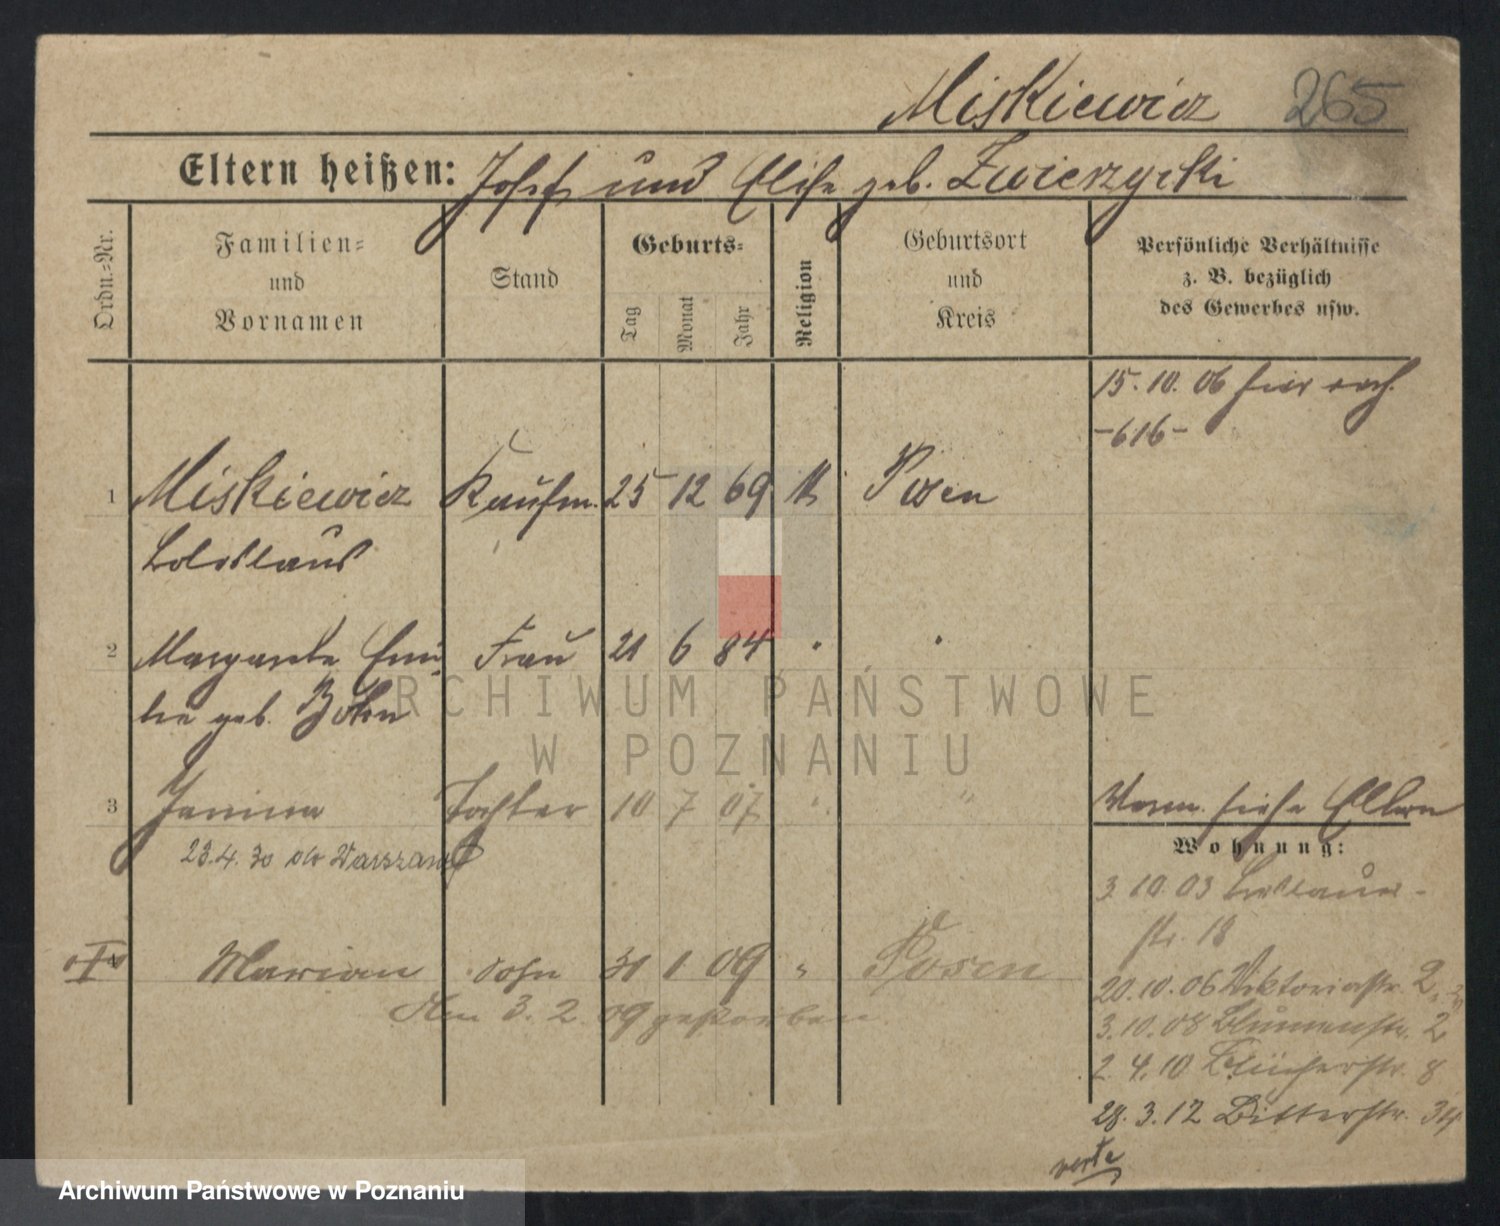 Miskiewicz 265
Eltern heißen: Josef und Elise geb. Zwierzycki
Ordn.-Nr.
Familien-
und
Vornamen
Stand
Geburts-
Tag
Monat
Jahr
Religion
Geburtsort
und
Kreis
Persönliche Verhältnisse
z. B. bezüglich
des Gewerbes usw.
15. 10. 06 hier
-616-
1 Miskiewicz Kaufm. 25 12 69 K Posen
Boleslaus
2 Margarete Emi- Frau 21 6 84 " "
lie geb. Bohn
3 Janina Tochter 10 7 07 " "
23.4.30 Warszawa
Marian Sohn 31 1 09 " Posen
Am 3. 2. 09 gestorben
Verm. siehe Eltern
Wohnung:
3 10. 03 Breslauer-
str. 18
20. 10. 06 Viktoriastr. 2
3. 10. 08 Blumenstr. 2
2. 4. 10 Blücherstr. 8
28. 3. 12 Ritterstr.
verte
ARCHIWUM PAŃSTWOWE
W POZNANIU
Archiwum Państwowe w Poznaniu